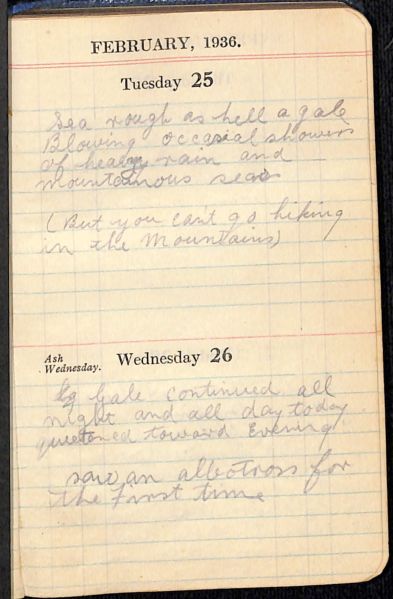 FEBRUARY, 1936.
Tuesday 25
Sea rough as hell a gale
Blowing occasial showers
of heavy rain and
mountainous seas
(But you can't go hiking
in the Mountains)
Ash
Wednesday.
Wednesday 26
Gale continued all
night and all day today
quietened toward Evening
saw an albotross for
the First time